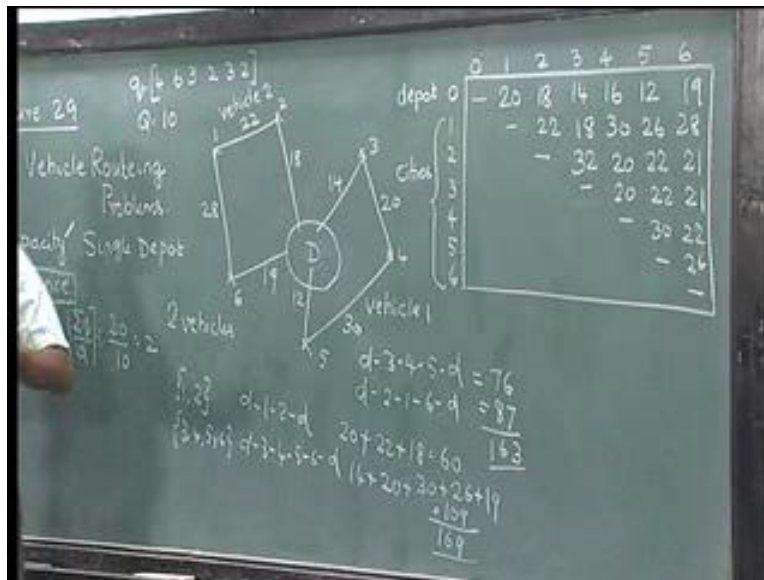 q [4 6 3 2 3 2]
Q: 10
ure 29
Vehicle Routeing
Problems
pacity Single Depot
2 vehicles
= 20/10 = 2
vehicle 2
1
22
2
28
18
6
19
D
14
3
20
4
30
vehicle 1
12
5
0 1 2 3 4 5 6
depot 0 - 20 18 14 16 12 19
Cities
1 - 22 18 30 26 28
2 - 32 20 22 21
3 - 20 22 21
4 - 30 22
5 - 26
6 -
d-3-4-5-d = 76
d-2-1-6-d = 87
163
{1, 2} d-1-2-d 20+22+18=60
{3,4,5,6} d-3-4-5-6-d 14+20+30+26+19
=109
169